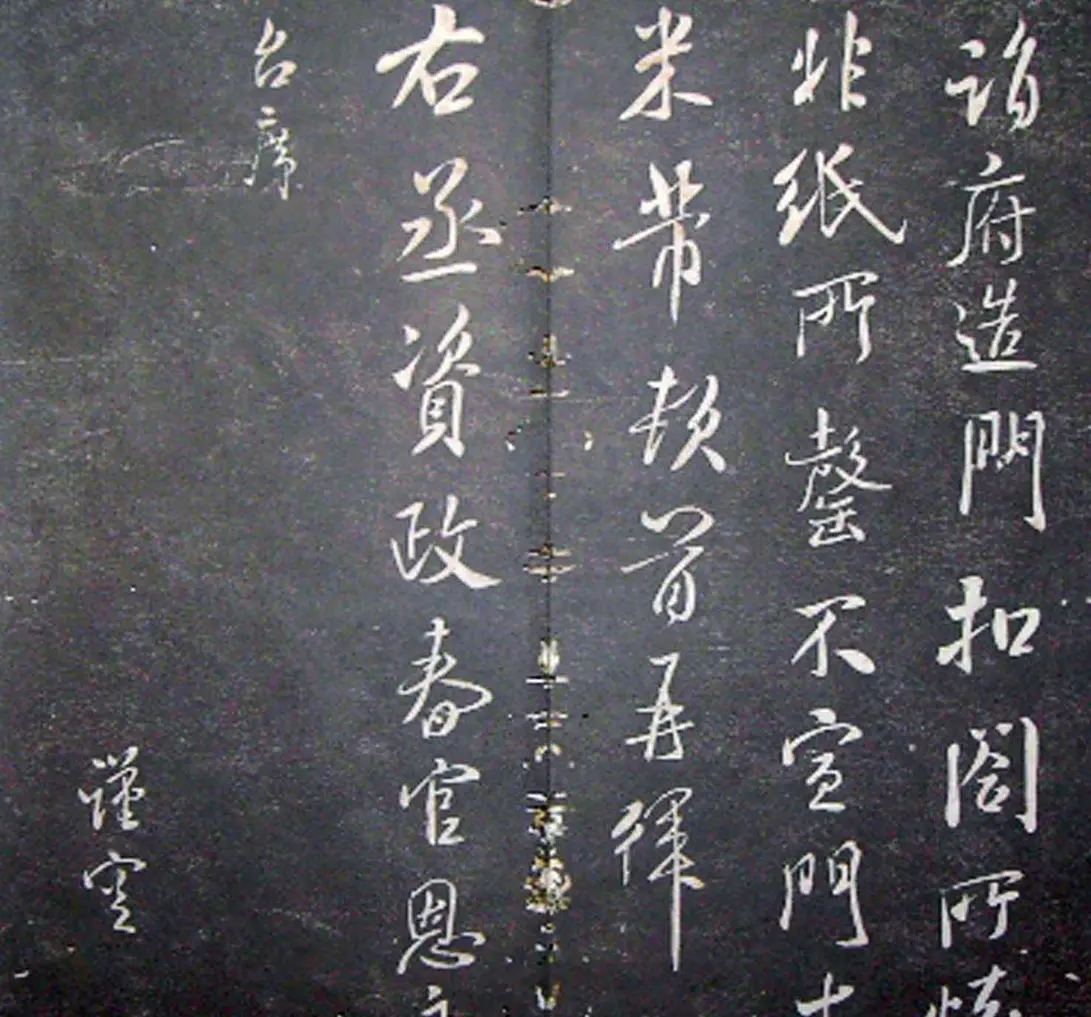 詣府造門扣閤所
非紙所罄不宣門
米芾頓首再拜
右丞資政春官恩
台席
謹空